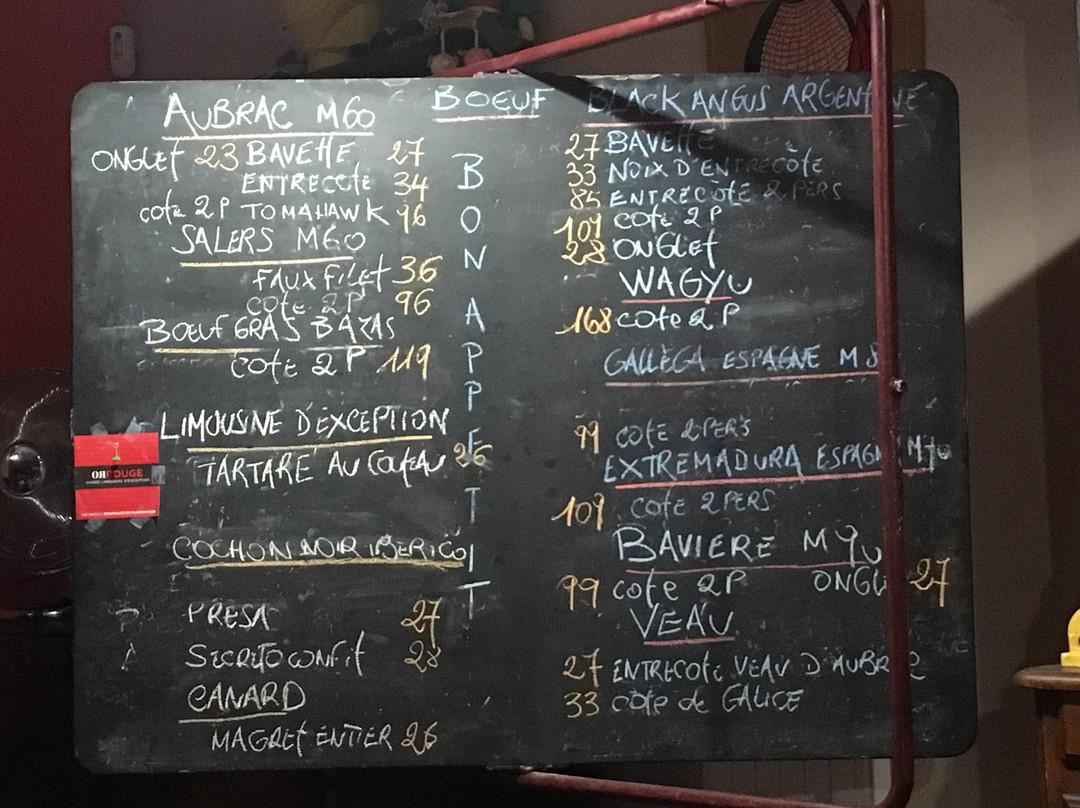 BOEUF
AUBRAC M60
ONGLET 23 BAVETTE 27
ENTRECOTE 34
COTE 2P TOMAHAWK 96
SALERS M60
FAUX FILET 36
COTE 2P 96
BOEUF GRAS BAZAS
COTE 2P 119
LIMOUSINE D'EXCEPTION
TARTARE AU COUTEAU 26
OR ROUGE
COCHON NOIR IBERICO
PRESA 27
SECRETO CONFIT 28
CANARD
MAGRET ENTIER 26
BON APPETIT
BLACK ANGUS ARGENTINE
27 BAVETTE
33 NOIX D'ENTRECOTE
85 ENTRECOTE 2 PERS
109 COTE 2P
28 ONGLET
WAGYU
168 COTE 2P
GALLEGA ESPAGNE M8
99 COTE 2 PERS
EXTREMADURA ESPAGN M70
109 COTE 2 PERS
BAVIERE M90
99 COTE 2P ONGL 27
VEAU
27 ENTRECOTE VEAU D'AUBRAC
33 COTE de GALICE